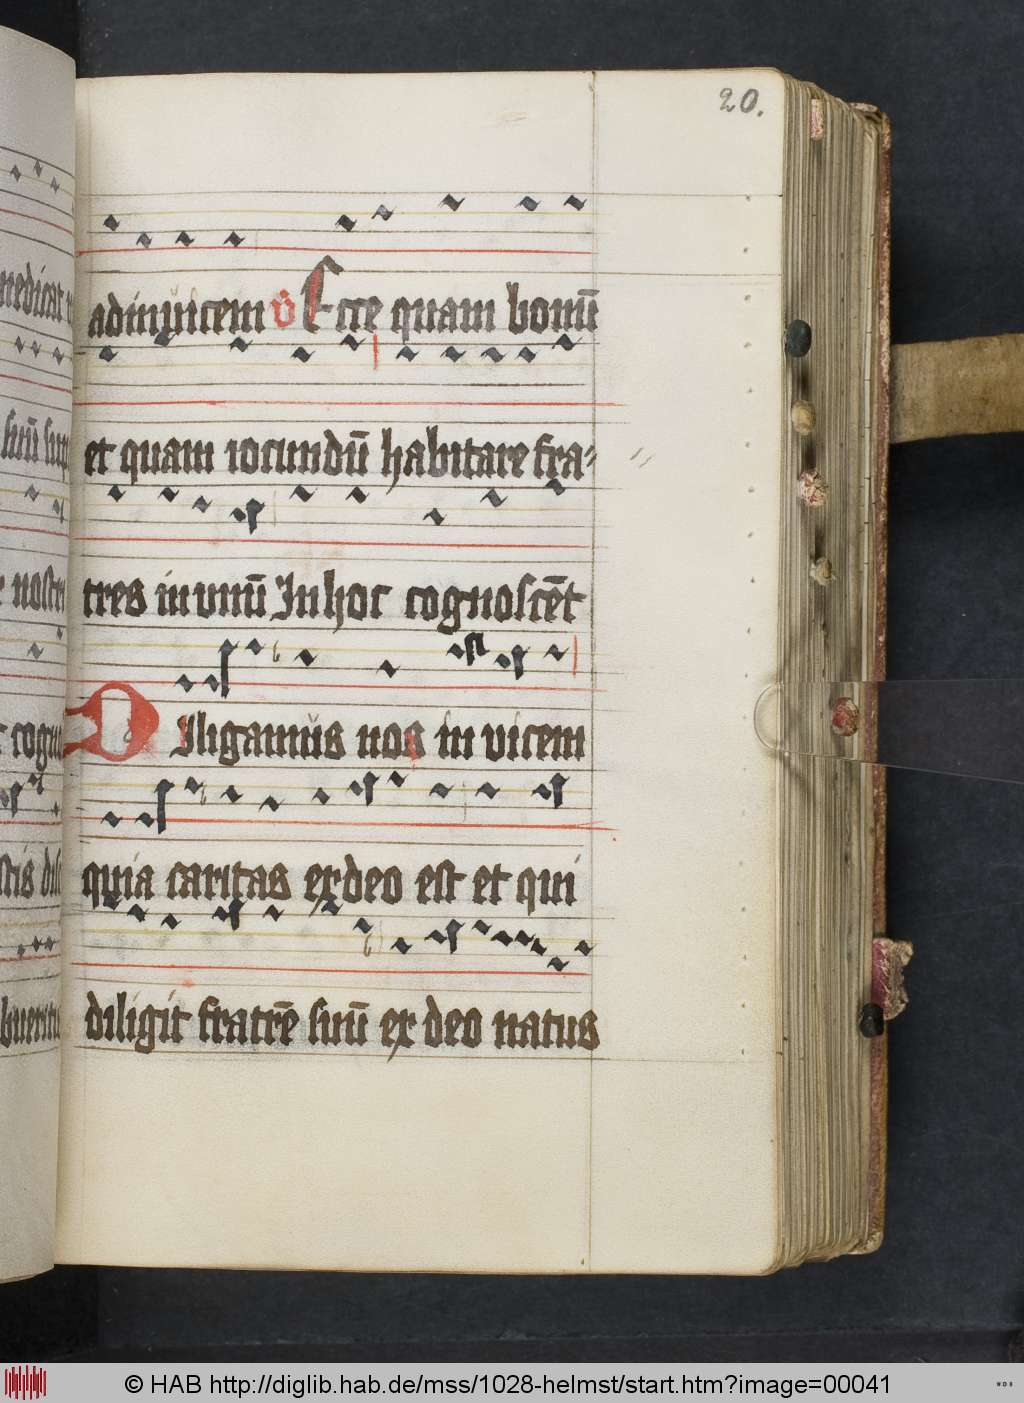 20.
adinuicem v Ecce quam bonū
et quam iocundū habitare fra-
tres in unū In hoc cognoscēt
Diligamus nos in vicem
quia caritas ex deo est et qui
diligit fratrē suū ex deo natus
nedicat
suū sup
nostri
cogno
stis
bueritis
© HAB http://diglib.hab.de/mss/1028-helmst/start.htm?image=00041